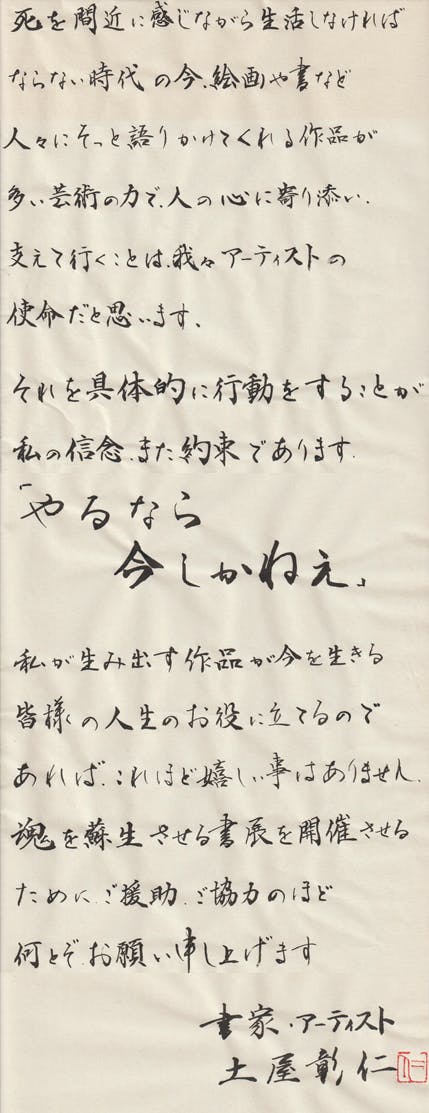 死を間近に感じながら生活しなければ
ならない時代の今、絵画や書など
人々にそっと語りかけてくれる作品が
多い芸術の力で、人の心に寄り添い、
支えて行くことは、我々アーティストの
使命だと思います、
それを具体的に行動をすることが
私の信念、また約束であります。
「やるなら
今しかねえ」
私が生み出す作品が今を生きる
皆様の人生のお役に立てるので
あれば、これほど嬉しい事はありません。
魂を蘇生させる書展を開催させる
ために、ご援助、ご協力のほど
何とぞ、お願い申し上げます
書家・アーティスト
土屋彰仁